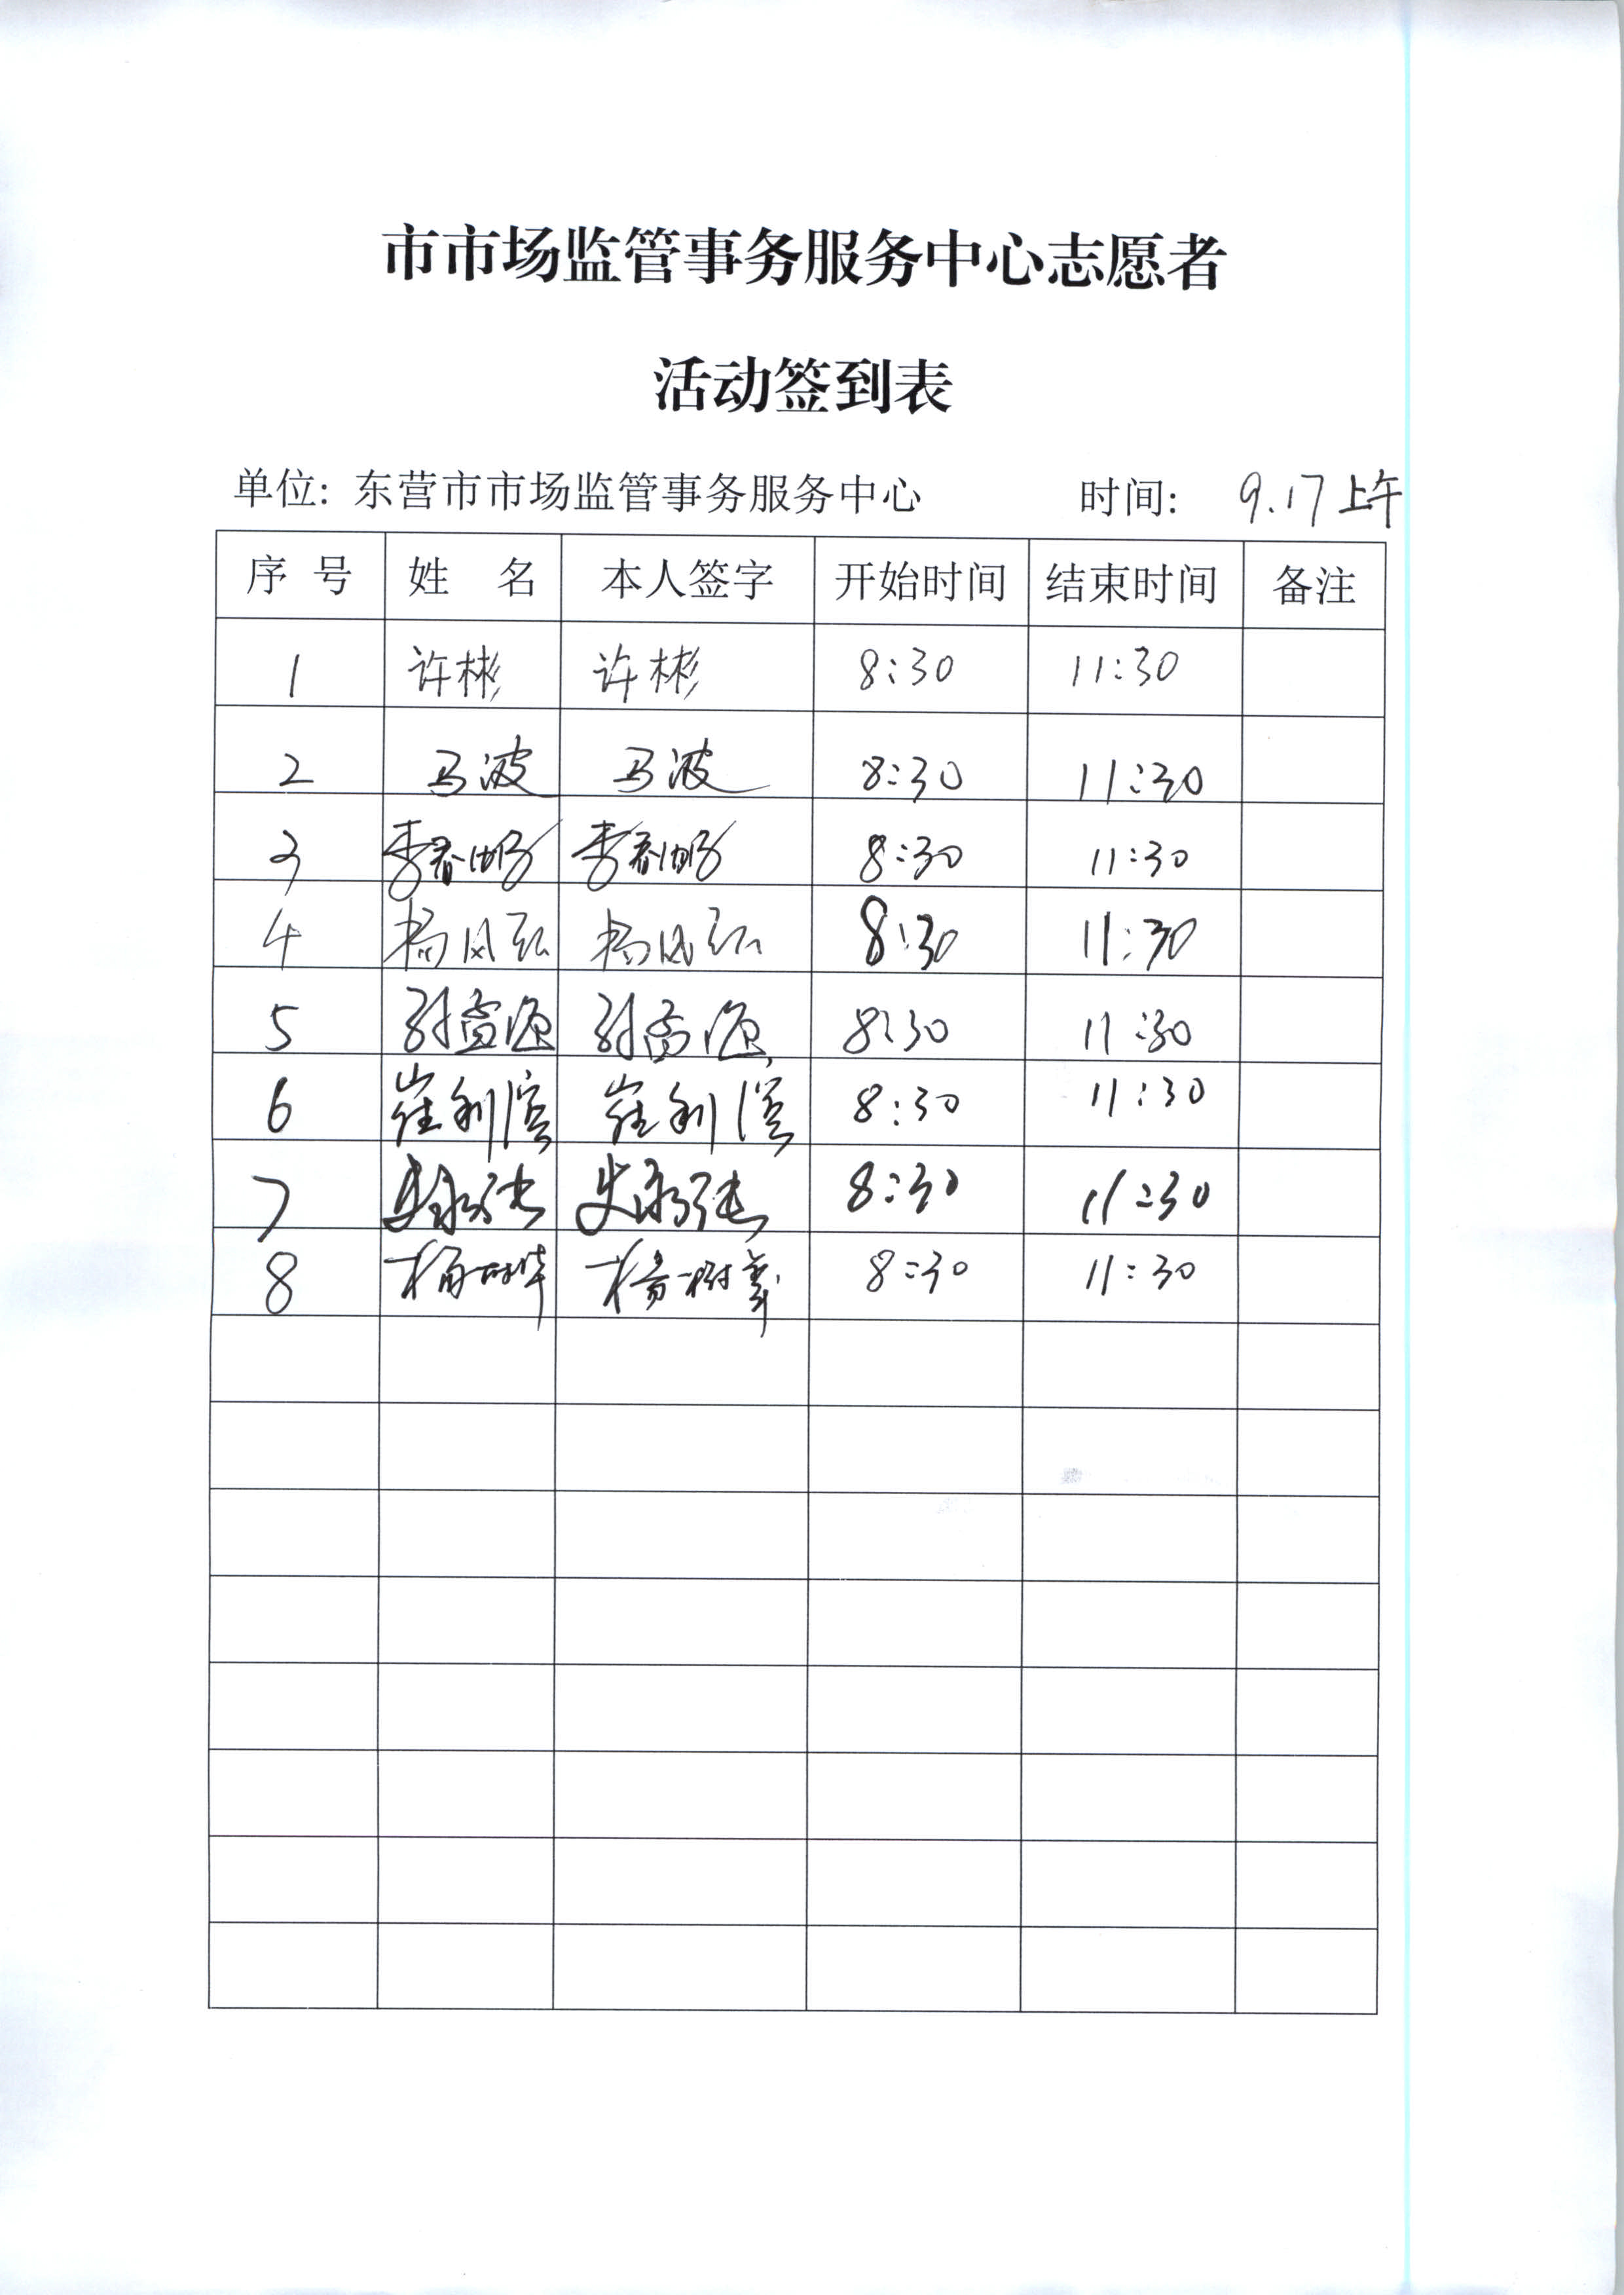 市市场监管事务服务中心志愿者
活动签到表
单位: 东营市市场监管事务服务中心 时间: 9.17上午
序 号 姓 名 本人签字 开始时间 结束时间 备注
1 许彬 许彬 8:30 11:30
2 马波 马波 8:30 11:30
3 李春 李春 8:30 11:30
4 杨风 杨风 8:30 11:30
5 8:30 11:30
6 崔利滨 崔利滨 8:30 11:30
7 史永强 史永强 8:30 11:30
8 杨树 杨树 8:30 11:30